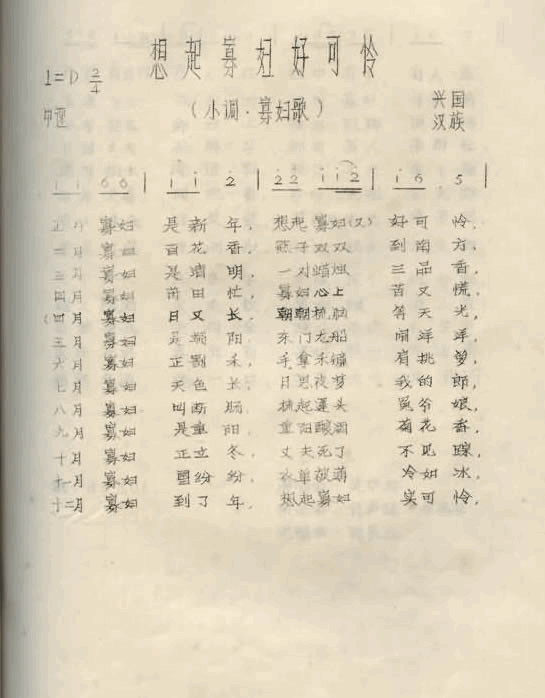 想起寡妇好可怜
(小调·寡妇歌)
1=D 2/4
中速
兴国
汉族
i i 6 6 | i i 2 | 2 2 i i 2 | i 6 5 |
正月 寡妇 是新 年, 想起 寡妇(又) 好可 怜,
二月 寡妇 百花 香, 燕子 双双 到南 方,
三月 寡妇 是清 明, 一对 蜡烛 三品 香,
四月 寡妇 莳田 忙, 寡妇 心上 苦又 慌,
(四月 寡妇 日又 长, 朝朝 梳 等天 光,
月 寡妇 阳, 东门 龙船 闹洋 洋,
六月 寡妇 正割 禾, 手拿 禾镰 肩挑 箩,
七月 寡妇 天色 长, 日思 夜梦 我的 郎,
八月 寡妇 叫断 肠, 梳起 头 冤爷 娘,
九月 寡妇 是重 阳, 重阳 酒 菊花 香,
十月 寡妇 正立 冬, 丈夫 死了 不见 踪,
十一月 寡妇 雪纷 纷, 衣单 被薄 冷如 冰,
十二月 寡妇 到了 年, 想起 寡妇 实可 怜,